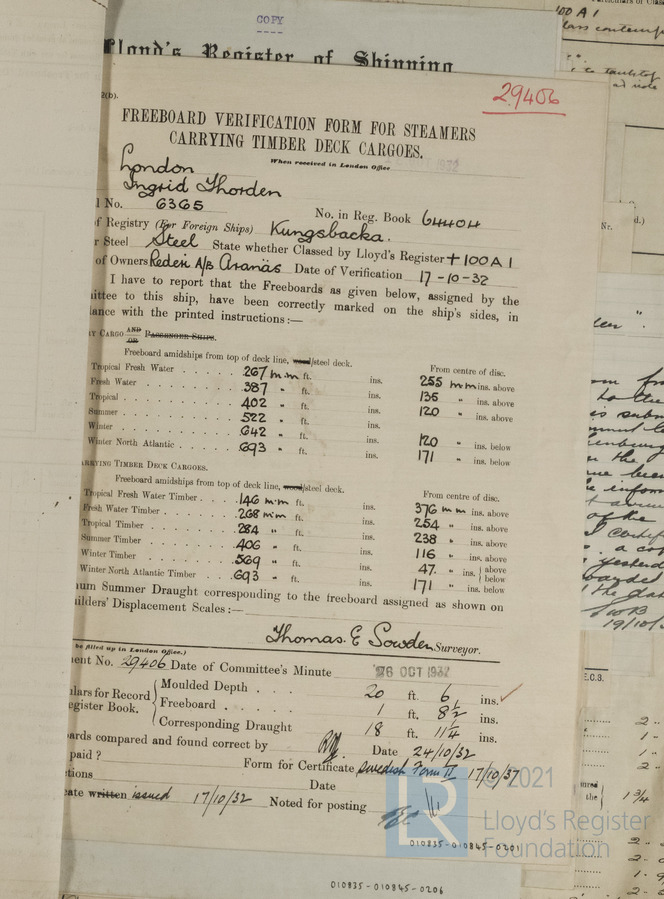 COPY
Lloyd's Register of Shipping
29406
2(b).
FREEBOARD VERIFICATION FORM FOR STEAMERS
CARRYING TIMBER DECK CARGOES.
When received in London Office
1932
London
Ingrid Thorden
l No. 6365 No. in Reg. Book 64404
of Registry (For Foreign Ships) Kungsbacka.
r Steel Steel State whether Classed by Lloyd's Register +100A1
of Owners Rederi A/B Aranäs Date of Verification 17-10-32
I have to report that the Freeboards as given below, assigned by the
ittee to this ship, have been correctly marked on the ship's sides, in
ance with the printed instructions:—
Y CARGO AND OR PASSENGER SHIPS.
Freeboard amidships from top of deck line, wood/steel deck. From centre of disc.
Tropical Fresh Water . . . . . 267 m.m ft. ins. 255 mm ins. above
Fresh Water . . . . . 387 " ft. ins. 135 " ins. above
Tropical . . . . . 402 " ft. ins. 120 " ins. above
Summer . . . . . 522 " ft. ins.
Winter . . . . . 642 " ft. ins. 120 " ins. below
Winter North Atlantic . . . . . 693 " ft. ins. 171 " ins. below
ARRYING TIMBER DECK CARGOES.
Freeboard amidships from top of deck line, wood/steel deck. From centre of disc.
Tropical Fresh Water Timber . . . . 146 m.m ft. ins. 376 mm ins. above
Fresh Water Timber . . . . 268 m.m ft. ins. 254 " ins. above
Tropical Timber . . . . 284 " ft. ins. 238 " ins. above
Summer Timber . . . . 406 " ft. ins. 116 " ins. above
Winter Timber . . . . 569 " ft. ins. 47. " ins. above below
Winter North Atlantic Timber . . . . 693 " ft. ins. 171 " ins. below
um Summer Draught corresponding to the freeboard assigned as shown on
uilders' Displacement Scales:—
Thomas. E Sowden Surveyor.
be filled up in London Office.)
ent No. 29406 Date of Committee's Minute 26 OCT 1932
ulars for Record Moulded Depth . . . 20 ft. 6 ins.
egister Book. Freeboard . . . . . 1 ft. 8½ ins.
Corresponding Draught 18 ft. 11¼ ins.
ards compared and found correct by Date 24/10/32
paid ? Form for Certificate Swedish Form II 17/10/37
ctions Date
cate written issued 17/10/32 Noted for posting
© 2021
LR Lloyd's Register
Foundation
010835-010845-0201
010835-010845-0206
100A1
19/10/3
E.C.B.
1 3/4